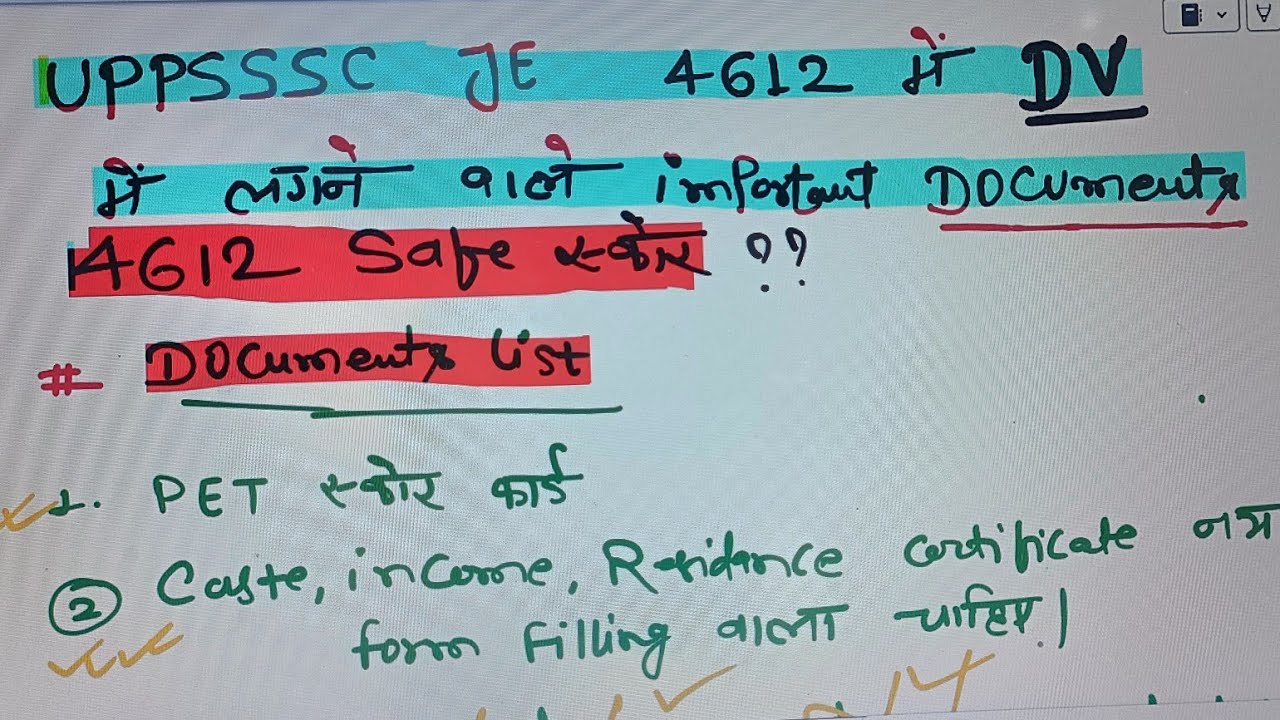 UPPSSSC JE 4612 में DV
में लगने वाले important Documents
4612 Safe स्कोर ??
# Documents List
1. PET स्कोर कार्ड
② Caste, income, Residence certificate
form filling वाला चाहिए।